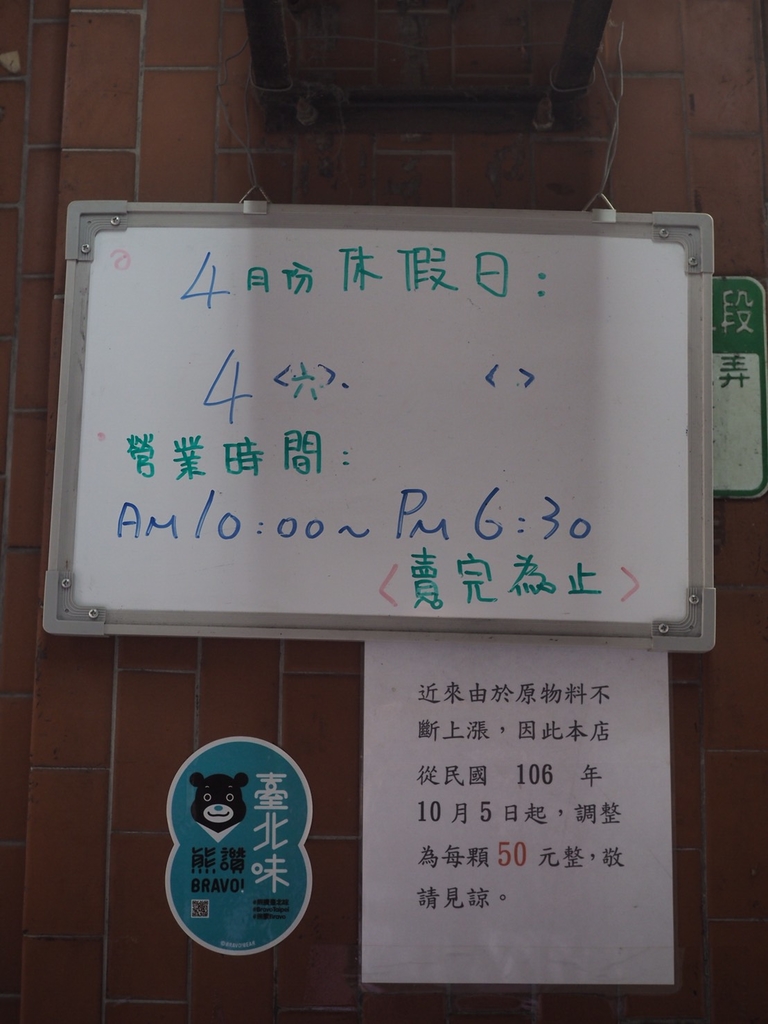 4月份休假日:
4<六>. < >
營業時間:
AM10:00~PM6:30
<賣完為止>
段
弄
近來由於原物料不
斷上漲，因此本店
從民國 106 年
10月5日起，調整
為每顆50元整，敬
請見諒。
臺北味
熊讚
BRAVO!